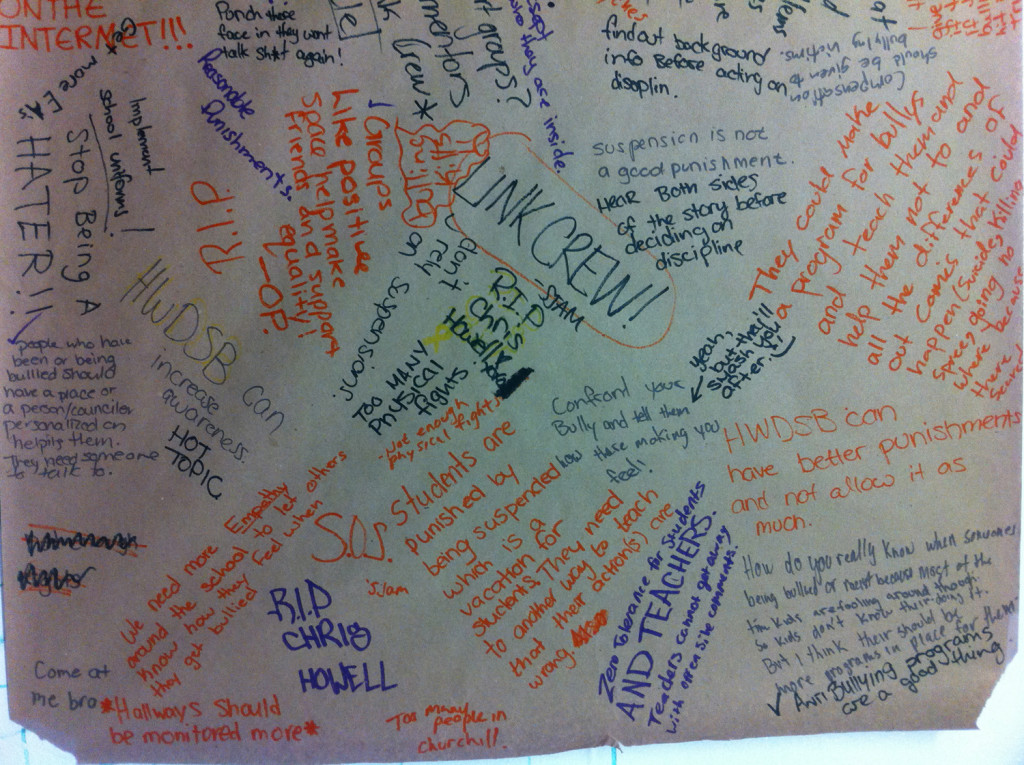 ON THE
INTERNET!!!
face in they wont
talk sh*t again!
Reasonable
Punishments.
mentors
Crew*
groups?
who they are inside.
find out background
info Before acting on
disoplin.
Compensation
should be given to
bullying victims.
Implement
school uniforms!
Stop Being A
HATER!!
people who have
been or being
bullied should
have a place or
a person/counciler
personalized on
helping them.
They need someone
to talk to.
R.I.P
! Groups
Like positive
Space help make
Friends and a support
equality!
-OP.
LINK CREW!
-SJAM
suspension is not
a good punishment.
HEAR Both sides
of the story before
deciding on
discipline
They could make
a program for bullys
and teach them and
help them not to and
all the differences of
out comes that could
happen (Suicides, killing
sprees, going no
where because
HWDSB can
increase
awareness.
HOT
TOPIC
don't
rely
on
suspensions.
R.I.P
Chris
Howell
TOO MANY
PHYSICAL
fights
-Not enough
physical fights
yeah,
but they'll
smash you
after.
Confrord your
Bully and tell them
how those making you
feel!
HWDSB can
have better punishments
and not allow it as
much.
We need more Empathy
around the school to let others
know how they feel when
they get bullied
S.O.S
students are
punished by
being suspended
which is a
vacation for
students. They need
to another way to teach
that their action(s) are
wrong
SJam
R.I.D
CHRIS
HOWELL
Zero Tolerance for Students
AND TEACHERS.
Teachers cannot get away
with off on side comments.
How do you really know when someones
being bullied or not because most of the
tim kids are fooling around though.
so kids don't know their doing it.
But I think their should be
more programs in place for them
✓ Anti Bullying programs
are a good thing
Come at
me bro
*Hallways should
be monitored more*
Too many
people in
churchill.